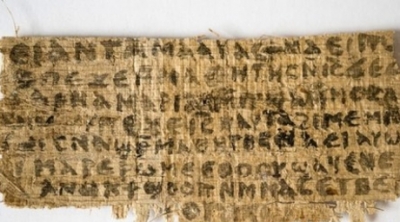 ⲉⲓ ⲁⲛ ⲧⲁⲙⲁⲁⲩ ⲁⲥϯ ⲛⲁⲉⲓ ⲡⲱ
ⲥ ⲡⲉϫⲉ ⲙⲙⲁⲑⲏⲧⲏⲥ ⲛⲓⲥ ϫⲉ ⲥ
ⲁⲣⲛⲁ ⲙⲁⲣⲓⲁⲙ ⲙⲡϣⲁ ⲙⲙⲟⲥ ⲁ
ⲡⲉϫⲉ ⲓⲥ ⲛⲁⲩ ⲧⲁϩⲓⲙⲉ ⲙⲛ
ⲥⲛⲁϣⲣⲙⲁⲑⲏⲧⲏⲥ ⲛⲁⲉⲓ ⲁⲩⲱ
ⲓ ⲙⲁⲣⲉⲣⲱⲙⲉ ⲉⲑⲟⲟⲩ ϣⲁϥⲉⲛⲉ
ⲁⲛⲟⲕ ϯϣⲟⲟⲡ ⲛⲙⲙⲁⲥ ⲉⲧⲃⲉ